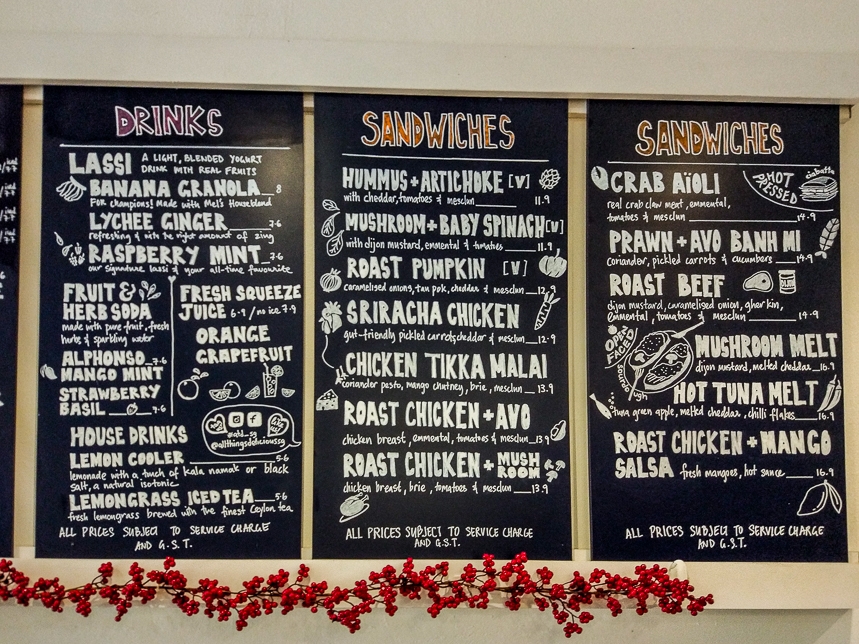 DRINKS
LASSI A LIGHT, BLENDED YOGURT
DRINK WITH REAL FRUITS
BANANA GRANOLA 8
For champions! Made with Mel's Houseblend
LYCHEE GINGER 7.6
refreshing & with the right amount of zing
RASPBERRY MINT 7.6
our signature lassi & your all-time favourite
FRUIT &
HERB SODA
made with pure fruit, fresh
herbs & sparkling water
ALPHONSO 7.6
MANGO MINT
STRAWBERRY
BASIL 7.6
FRESH SQUEEZE
JUICE 6.9 / no ice 7.9
ORANGE
GRAPEFRUIT
HOUSE DRINKS
@atd_sg
@allthingsdelicioussg
LEMON COOLER 5.6
lemonade with a touch of kala namak or black
salt, a natural isotonic
LEMONGRASS ICED TEA 5.6
fresh lemongrass brewed with the finest Ceylon tea
ALL PRICES SUBJECT TO SERVICE CHARGE
AND G.S.T.
SANDWICHES
HUMMUS + ARTICHOKE [V]
with cheddar, tomatoes & mesclun 11.9
MUSHROOM + BABY SPINACH [V]
with dijon mustard, emmental & tomatoes 11.9
ROAST PUMPKIN [V]
caramelised onions, tau pok, cheddar & mesclun 12.9
SRIRACHA CHICKEN
gut-friendly pickled carrots, cheddar & mesclun 12.9
CHICKEN TIKKA MALAI
coriander pesto, mango chutney, brie, mesclun 13.9
ROAST CHICKEN + AVO
chicken breast, emmental, tomatoes & mesclun 13.9
ROAST CHICKEN + MUSHROOM
chicken breast, brie, tomatoes & mesclun 13.9
ALL PRICES SUBJECT TO SERVICE CHARGE
AND G.S.T.
SANDWICHES
HOT PRESSED
ciabatta
CRAB AÏOLI
real crab claw meat, emmental,
tomatoes & mesclun 14.9
PRAWN + AVO BANH MI
coriander, pickled carrots & cucumbers 14.9
ROAST BEEF
dijon mustard, caramelised onion, gherkin,
emmental, tomatoes & mesclun 14.9
OPEN FACED
sourdough
MUSHROOM MELT
dijon mustard, melted cheddar 16.9
HOT TUNA MELT
tuna green apple, melted cheddar, chilli flakes 16.9
ROAST CHICKEN + MANGO
SALSA fresh mangoes, hot sauce 16.9
ALL PRICES SUBJECT TO SERVICE CHARGE
AND G.S.T.